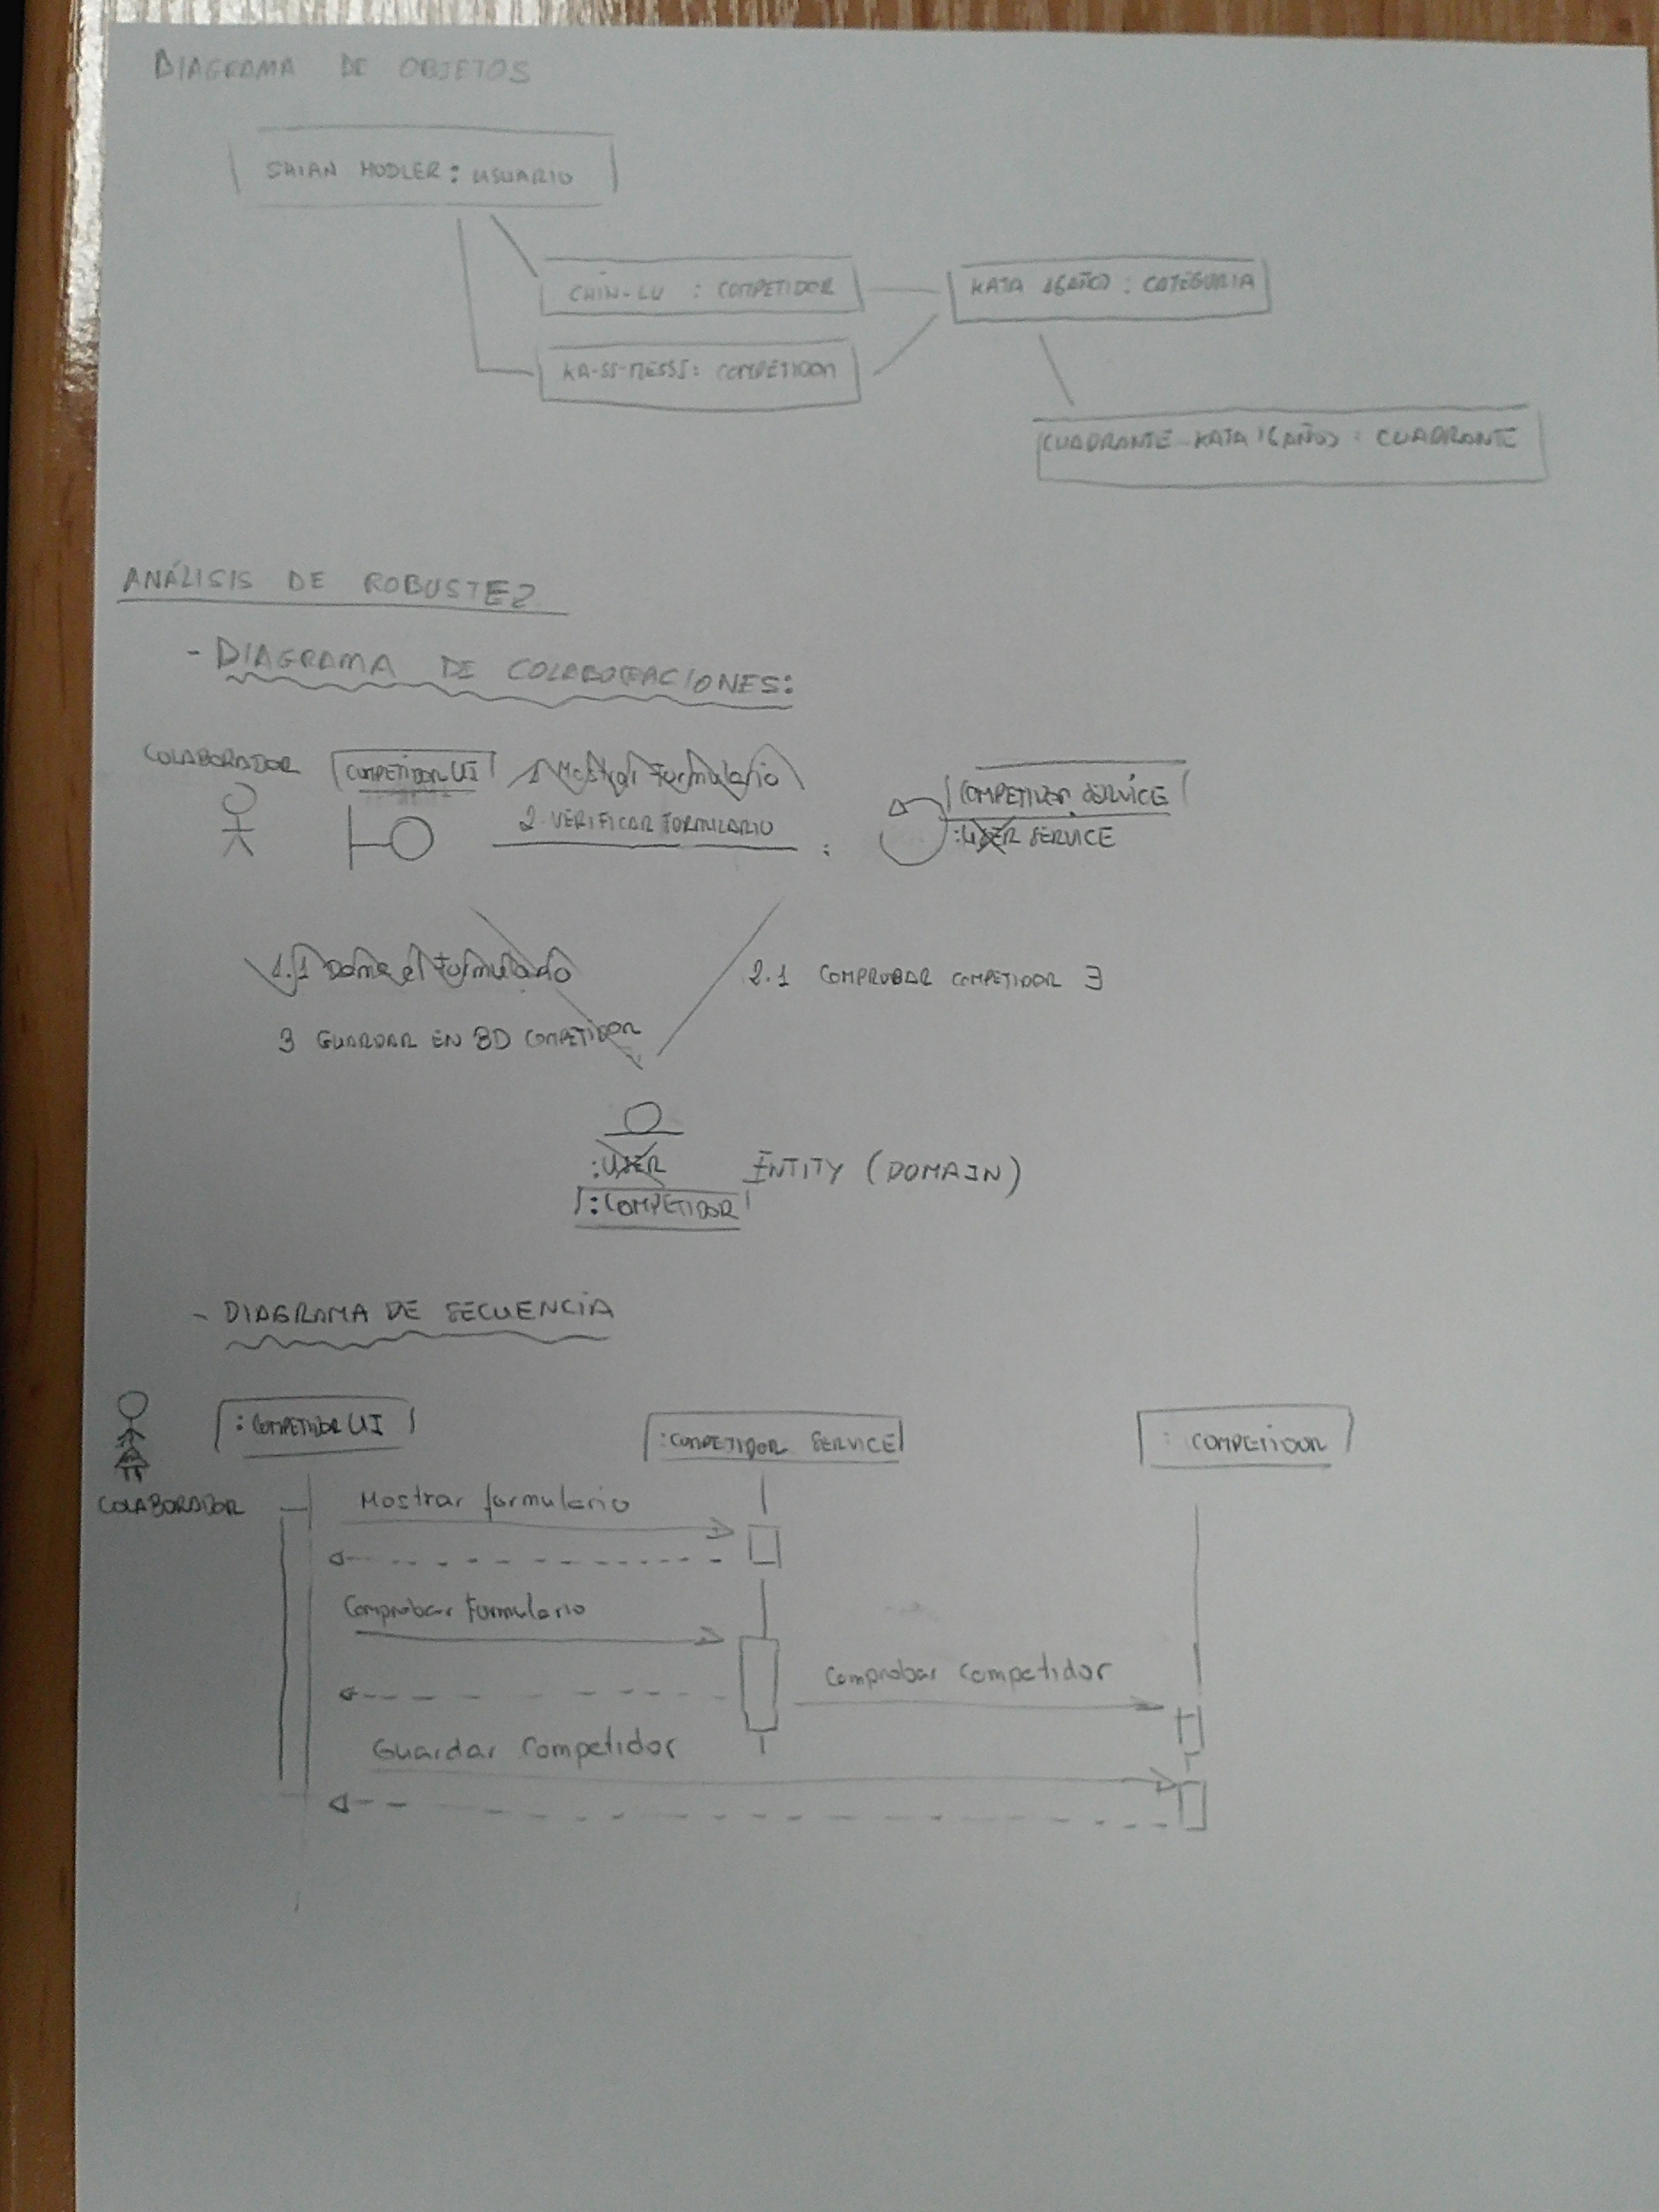 DIAGRAMA DE OBJETOS
SHIAN HODLER : USUARIO
CHIN-LU : COMPETIDOR
KATA 16AÑOS : CATEGORIA
KA-SS-MESSS : COMPETIDOR
CUADRANTE-KATA 16 AÑOS : CUADRANTE
ANÁLISIS DE ROBUSTEZ
- DIAGRAMA DE COLABORACIONES:
COLABORADOR
COMPETIDOR UI
1 Mostrar Formulario
COMPETIDOR SERVICE
2 VERIFICAR FORMULARIO
: USER SERVICE
1.1 Dame el Formulario
2.1 COMPROBAR COMPETIDOR ∃
3 GUARDAR EN BD COMPETIDOR
:USER
ENTITY (DOMAIN)
:COMPETIDOR
- DIAGRAMA DE SECUENCIA
:COMPETIDOR UI
:COMPETIDOR SERVICE
: COMPETIDOR
COLABORADOR
Mostrar formulario
Comprobar Formulario
Comprobar Competidor
Guardar Competidor